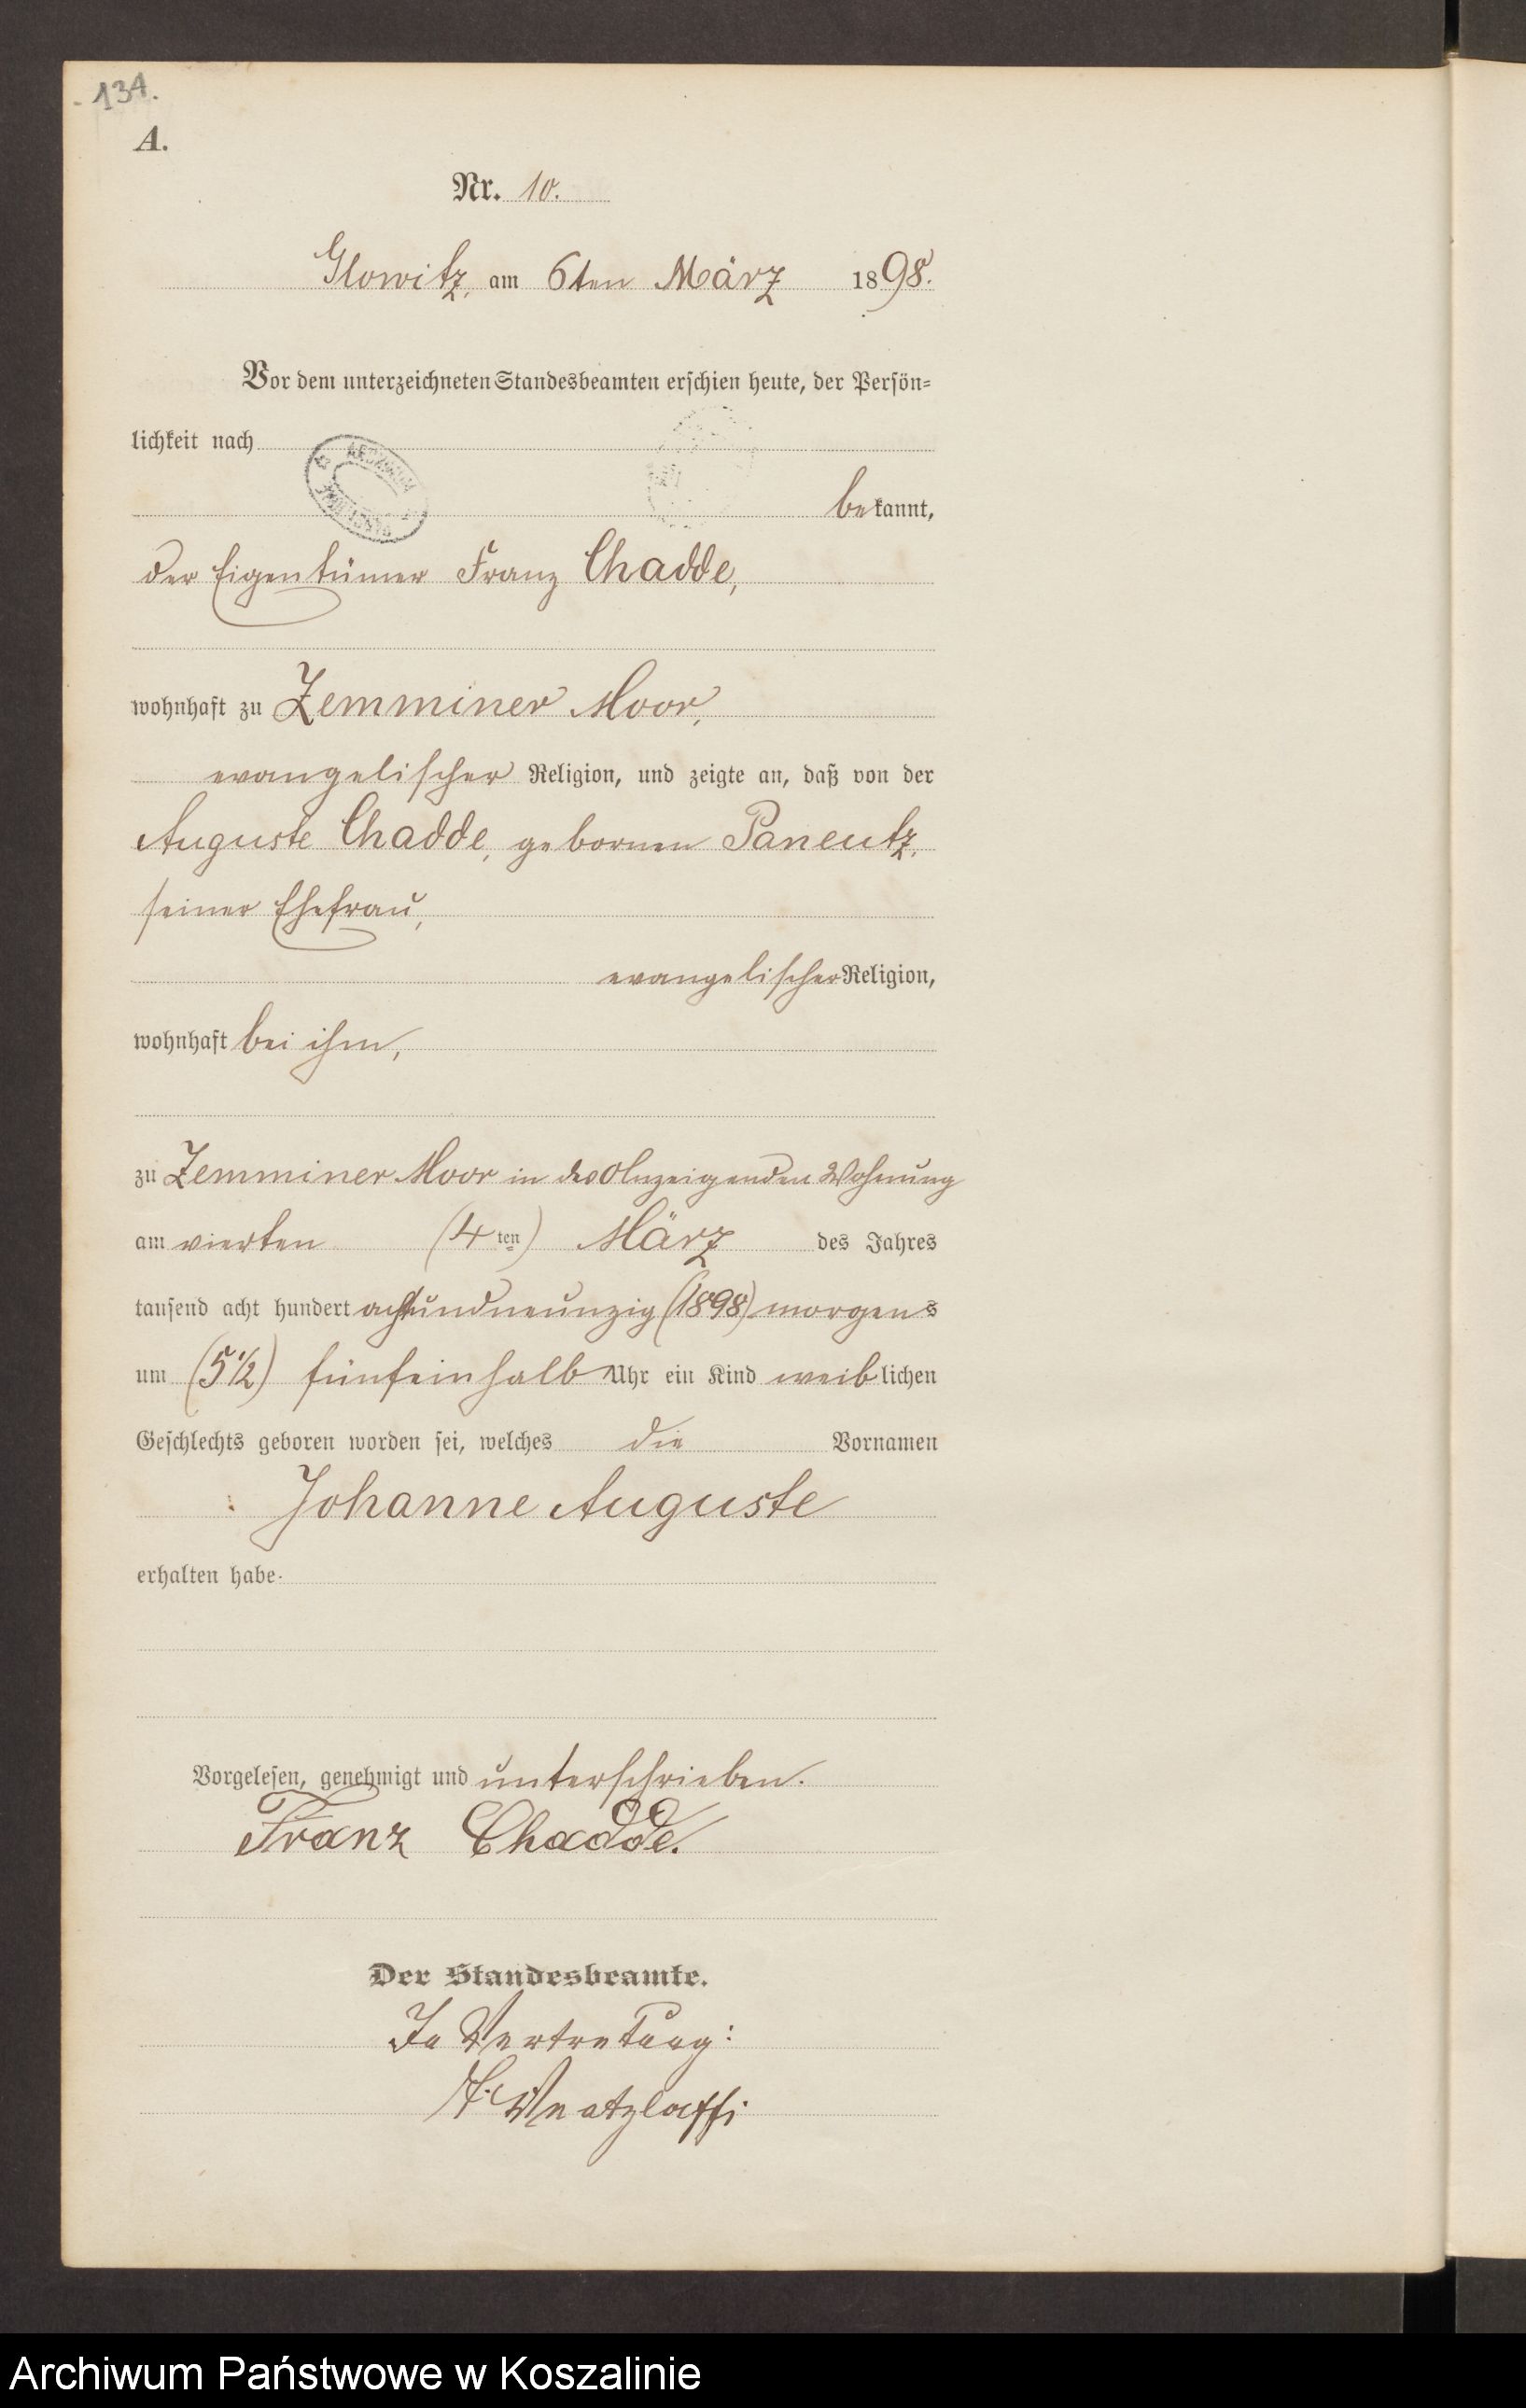 134.
A.
Nr. 10.
Glowitz, am 6ten März 1898.
Vor dem unterzeichneten Standesbeamten erschien heute, der Persön=
lichkeit nach
bekannt,
der Eigentümer Franz Chadde,
wohnhaft zu Zemminer Moor,
evangelischer Religion, und zeigte an, daß von der
Auguste Chadde, gebornen Paneutz,
seiner Ehefrau,
evangelischer Religion,
wohnhaft bei ihm,
zu Zemminer Moor in des Anzeigenden Wohnung
am vierten (4ten) März des Jahres
tausend acht hundert achtundneunzig (1898) morgens
um (5½) fünfeinhalb Uhr ein Kind weiblichen
Geschlechts geboren worden sei, welches die Vornamen
Johanne Auguste
erhalten habe.
Vorgelesen, genehmigt und unterschrieben.
Franz Chadde.
Der Standesbeamte.
In Vertretung:
Archiwum Państwowe w Koszalinie